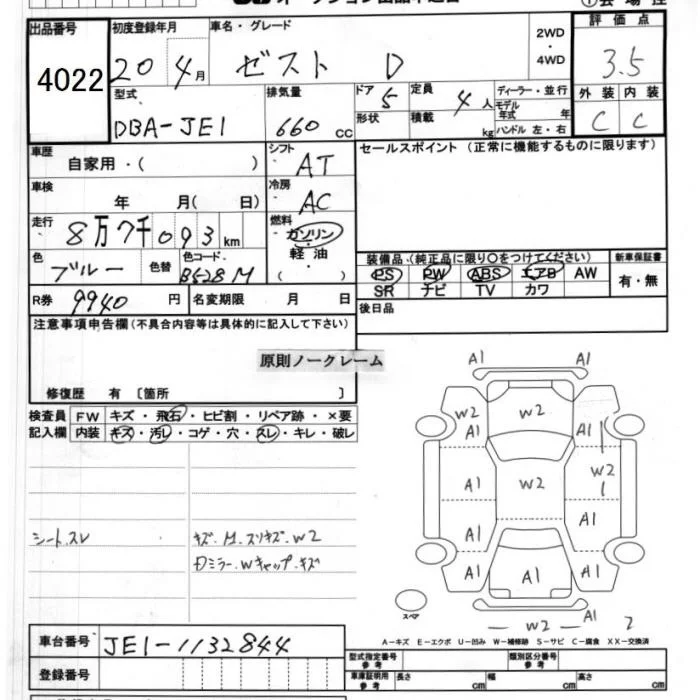 出品番号 4022
初度登録年月 20年4月
車名・グレード ゼスト D
2WD・4WD
評価点 3.5
外装 C 内装 C
型式 DBA-JE1
排気量 660cc
ドア 5 形状
定員 4人 積載 kg
ディーラー・並行
モデル年式 年
ハンドル 左・右
車歴 自家用・( )
シフト AT
セールスポイント (正常に機能するものに限ります)
車検 年 月( 日)
冷房 AC
走行 8万7千093km
燃料 ガソリン・軽油・( )
色 ブルー 色替 色コード B528M
装備品(純正品に限り○をつけてください)
PS PW ABS エアB AW
SR ナビ TV カワ
新車保証書 有・無
R券 9940円 名変期限 月 日
後日品
注意事項申告欄(不具合内容等は具体的に記入して下さい)
原則ノークレーム
修復歴 有 〔箇所 〕
検査員記入欄 FW キズ・飛石・ヒビ割・リペア跡・×要
内装 キズ・汚レ・コゲ・穴・スレ・キレ・破レ
シート.スレ
キズ.M.スリキズ.W2
Dミラー.Wキャップ.キズ
A1 A1
W2 W2 A1
A1
A1 W2 W2
A1 A1
A1 A1 A1
スペア
W2 A1 2
A-キズ E-エクボ U-凹み W-補修跡 S-サビ C-腐食 XX-交換済
車台番号 JE1-1132844
型式指定番号 参考 類別区分番号 参考
登録番号
車庫証明用 参考 長さ cm 幅 cm 高さ cm